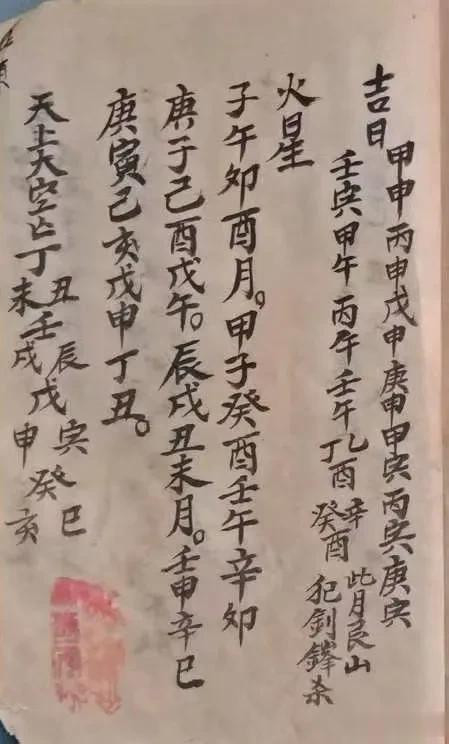 吉日
甲申丙申戊申庚申甲寅丙寅庚寅
壬寅甲午丙午壬午乙丁酉辛癸酉此月艮山犯釗鋒杀
火星
子午卯酉月。甲子癸酉壬午辛卯
庚子己酉戊午。辰戌丑未月。壬申辛巳
庚寅己亥戊申丁丑。
天上大空亡丁丑未壬辰戌戊寅申癸巳亥